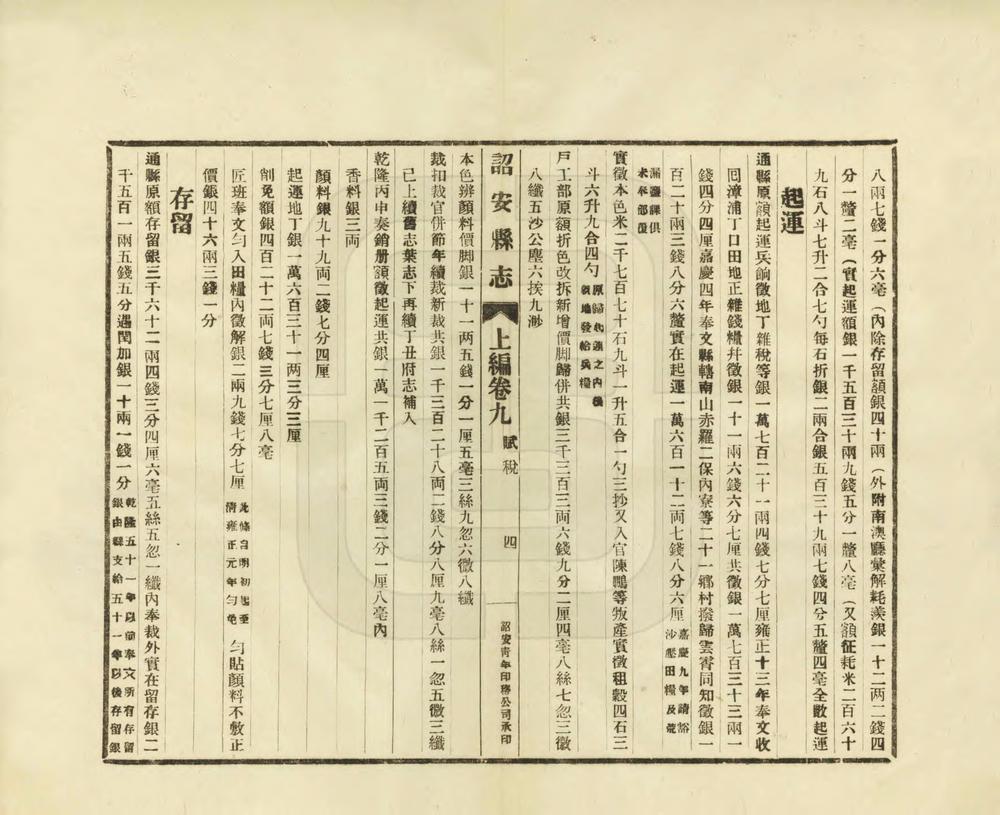 八兩七錢一分六毫（內除存留額銀四十兩（外附南澳廳彙解耗羨銀一十二兩二錢四
分一釐二毫（實起運額銀一千五百三十兩九錢五分一釐八毫（又額征耗米二百六十
九石八斗七升二合七勺每石折銀二兩合銀五百三十九兩七錢四分五釐四毫全散起運
起運
通縣原額起運兵餉徵地丁雜稅等銀一萬七百二十一兩四錢七分七厘雍正十三年奉文收
囘漳浦丁口田地正雜錢糧幷徵銀一十一兩六錢六分七厘共徵銀一萬七百三十三兩一
錢四分四厘嘉慶四年奉文縣轄南山赤羅二保內寮等二十一鄉村撥歸雲霄同知徵銀一
百二十兩三錢八分六釐實在起運一萬六百一十二両七錢八分六厘嘉慶九年請豁沙壓田糧及荒
漏鹽課俱未奉部覆
實徵本色米二千七百七十石九斗一升五合一勺三抄又入官陳鵬等叛產實徵租穀四石三
斗六升九合四勺
戸工部原額折色改拆新增價脚歸併共銀三千三百三両六錢九分二厘四毫八絲七忽三微
八纖五沙公塵六挨九渺
詔安縣志 上編卷九 賦稅 四 詔安靑年印務公司承印
本色辦顏料價脚銀一十一両五錢一分一厘五毫三絲九忽六微八纖
裁扣裁官併節年續裁新裁共銀一千三百二十八両二錢八分八厘九毫八絲一忽五微三纖
已上續舊志葉志下再續丁丑府志補入
乾隆丙申奏銷册額徵起運共銀一萬一千二百五両三錢二分一厘八毫內
香料銀三両
顏料銀九十九両二錢七分四厘
起運地丁銀一萬六百三十一両三分三厘
削免額銀四百二十二両七錢三分七厘八毫
匠班奉文勻入田糧內徵解銀二兩九錢七分七厘 勻貼顏料不敷正
價銀四十六兩三錢一分
存留
通縣原額存留銀三千六十二兩四錢三分四厘六毫五絲五忽一纖內奉裁外實在留存銀二
千五百一兩五錢五分遇閏加銀一十兩一錢一分乾隆五十一年以前奉文所有存留銀由縣支給五十一年以後存留銀